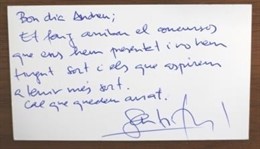 Bon dia Andreu;
Et faig arribar el concursos
que ens hem presentat i no hem
tingut sort i els que aspirem
a tenir més sort.
Cal que quedem aviat.